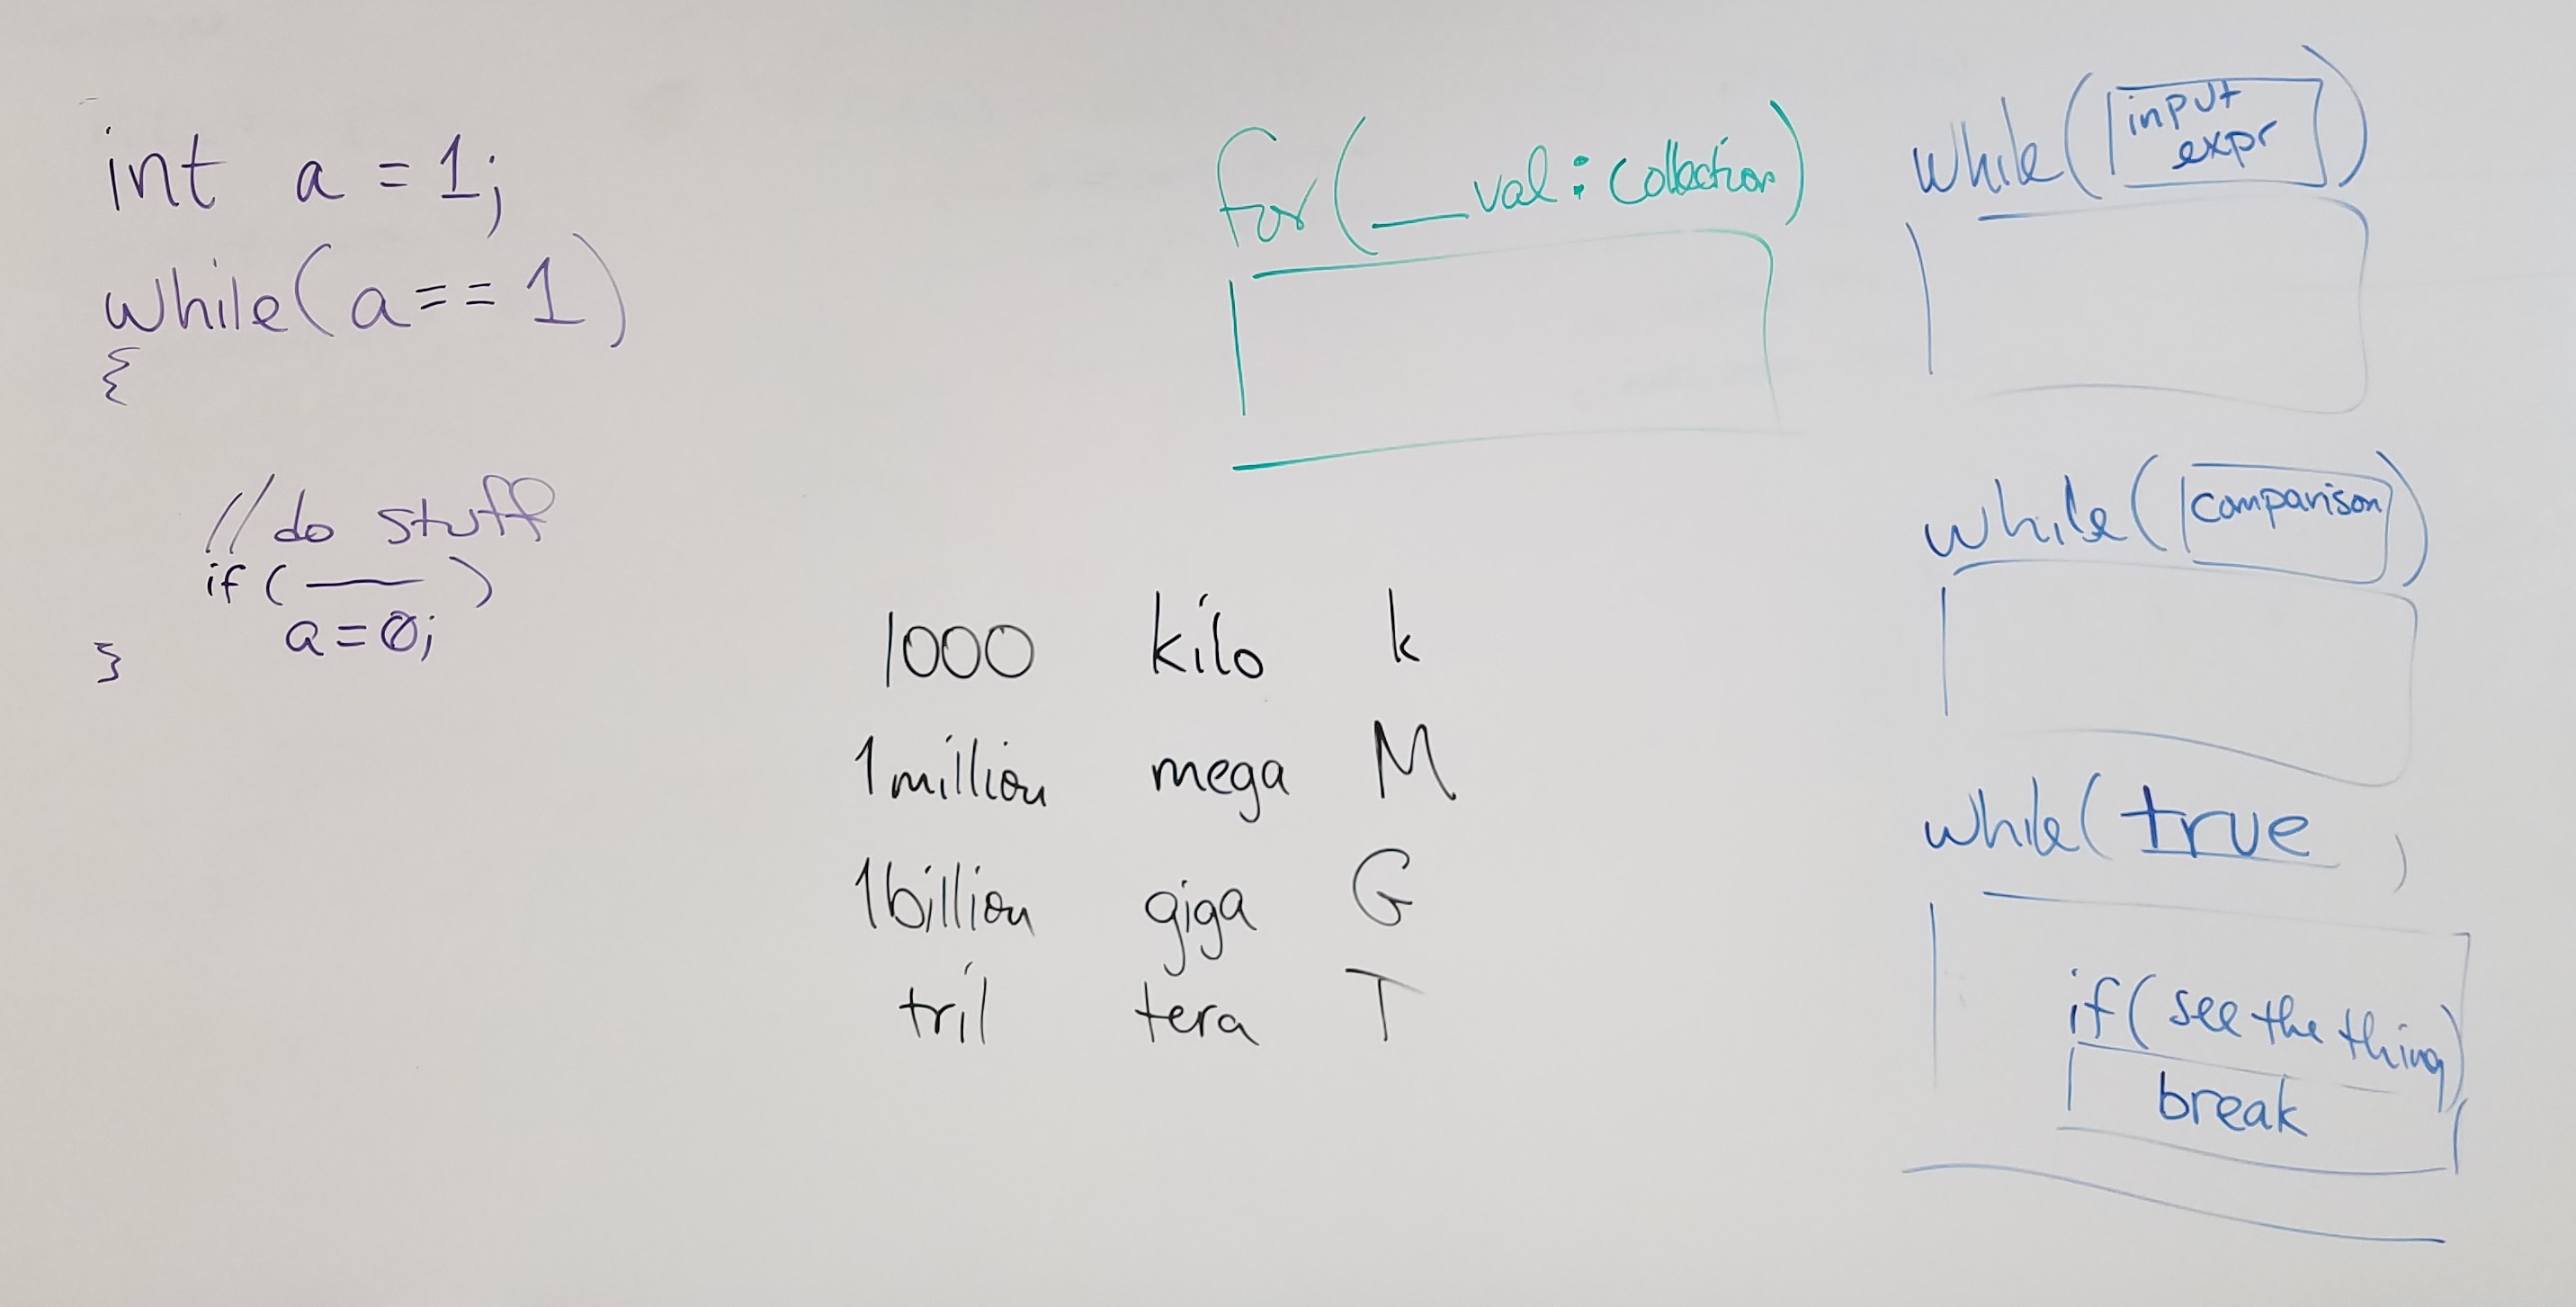 int a = 1;
while(a == 1)
{
//do stuff
if( ___ )
a = 0;
}
for(__ val : collection)
1000 kilo k
1 million mega M
1 billion giga G
tril tera T
while(input
expr)
while(comparison)
while(true)
if(see the thing)
break